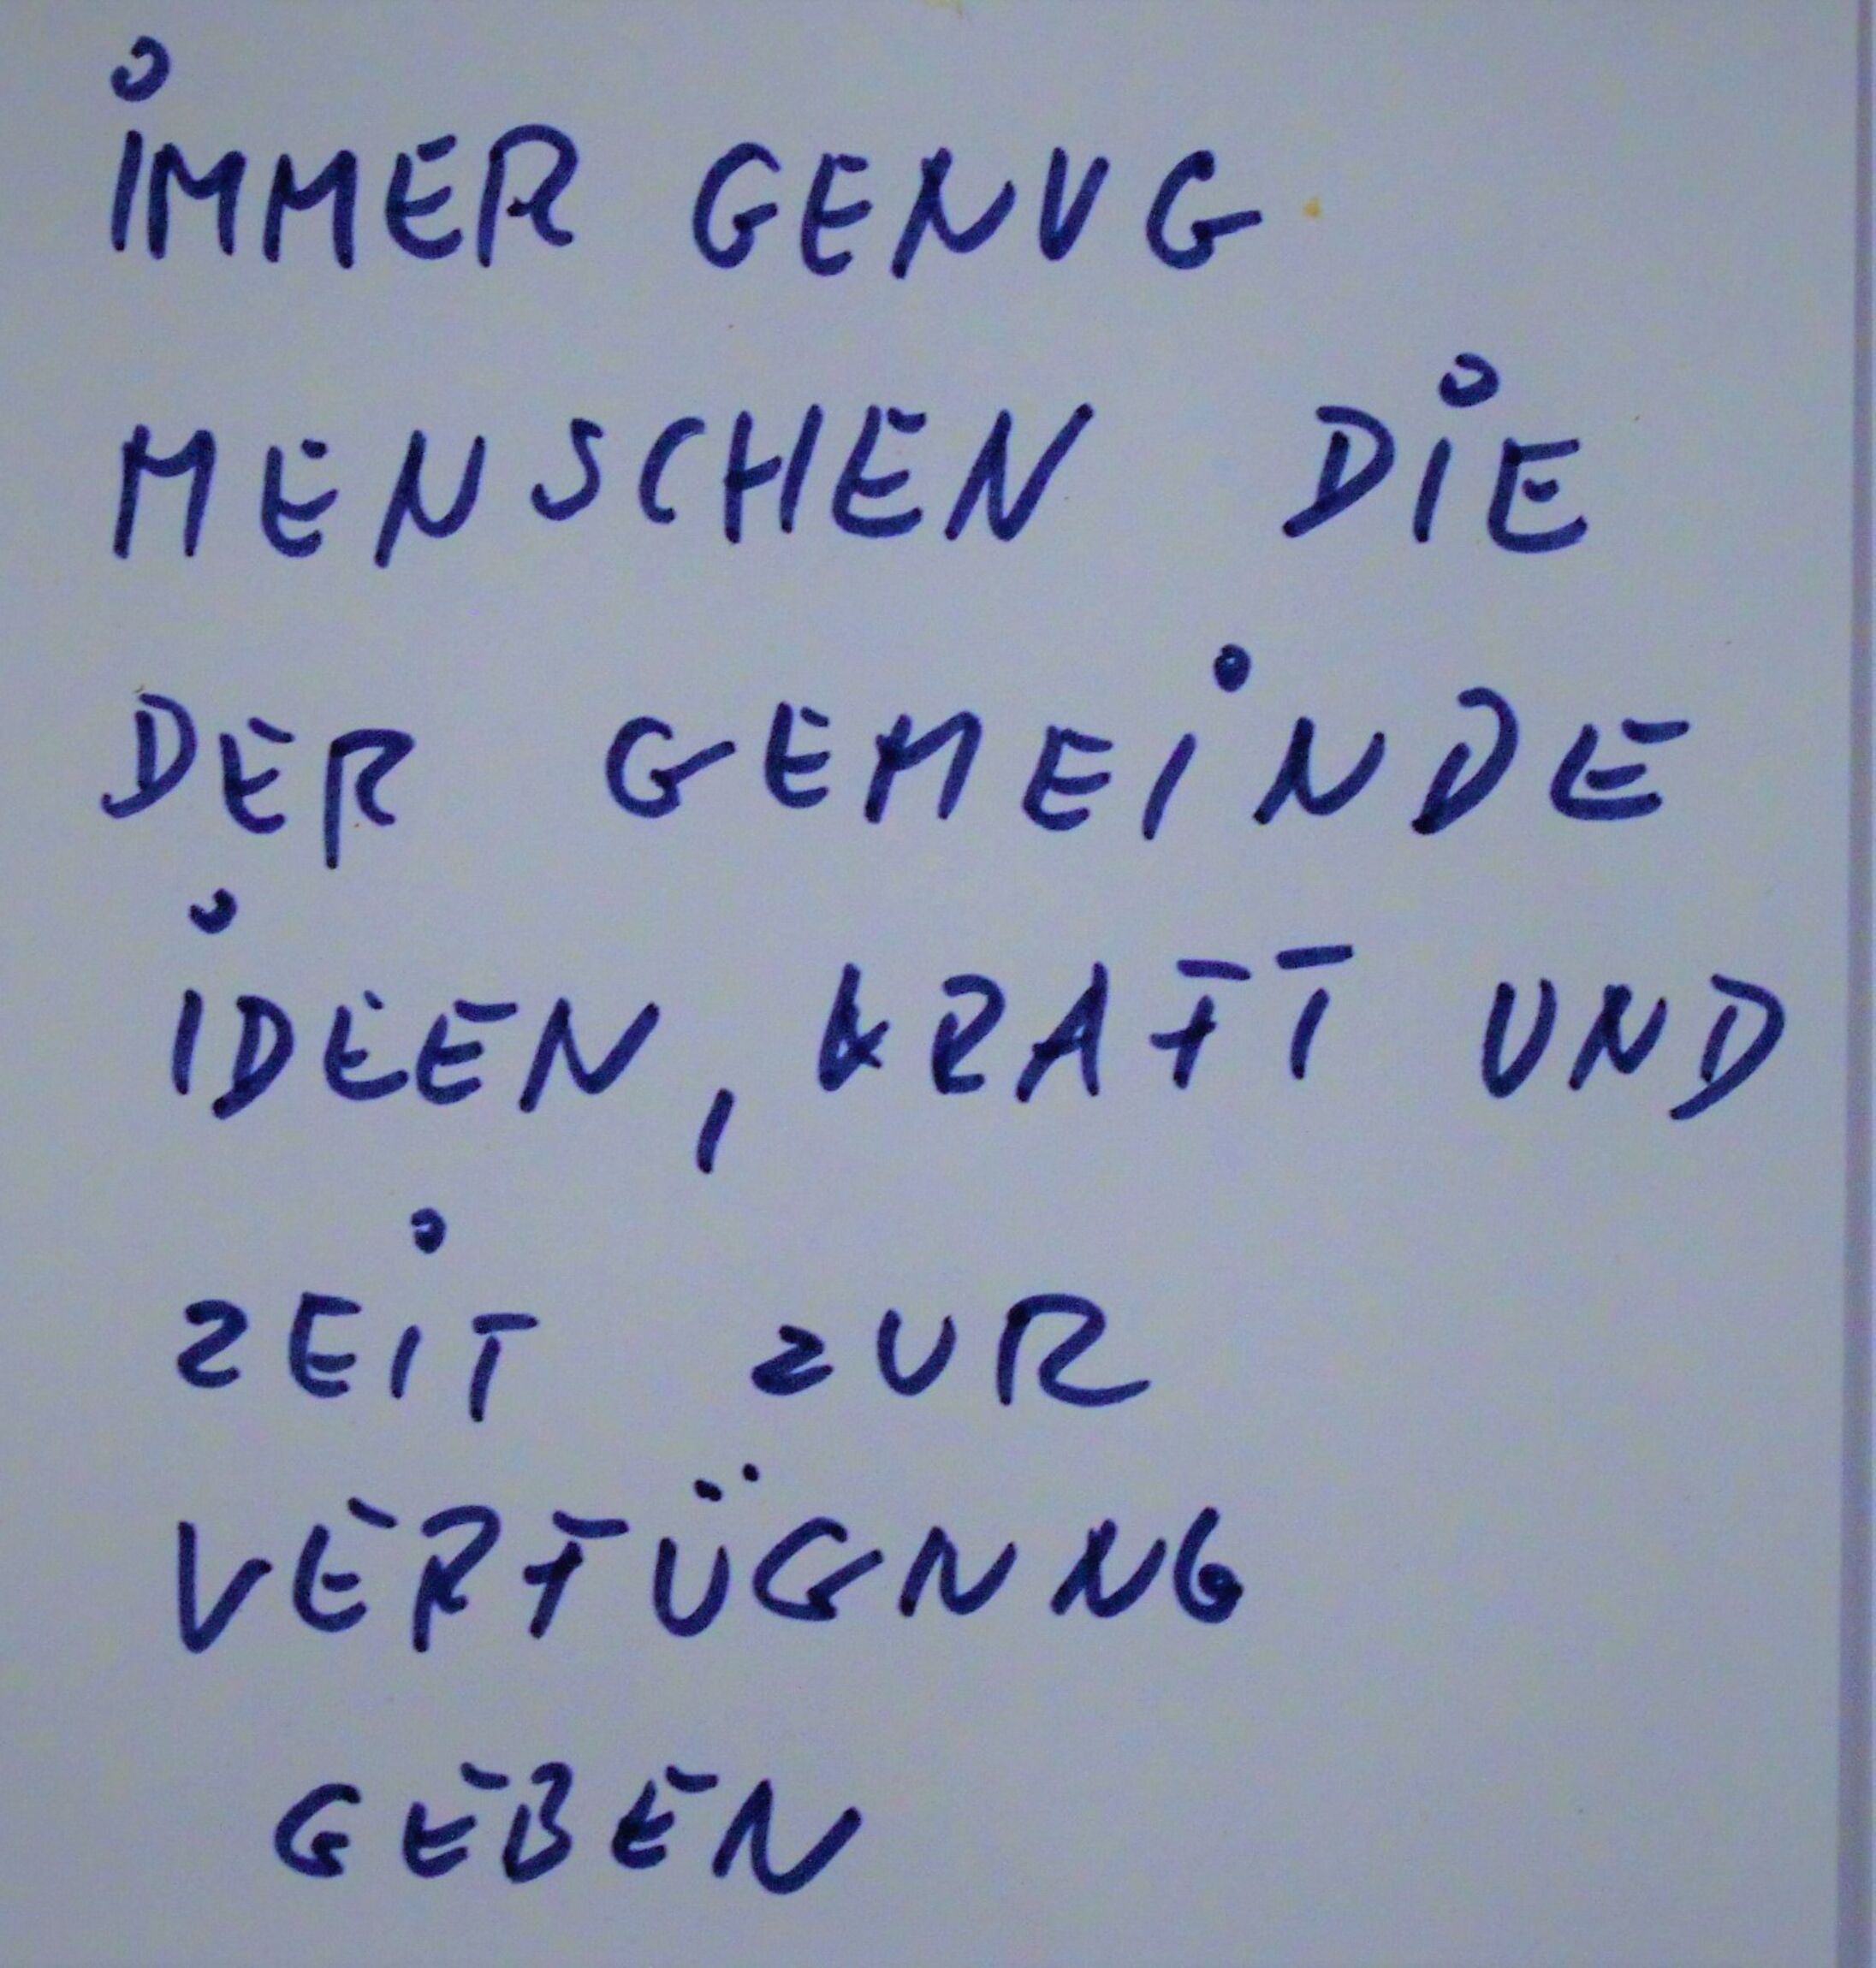 İMMER GENUG
MENSCHEN DİE
DER GEMEİNDE
İDEEN, KRAFT UND
ZEİT ZUR
VERFÜGNNG
GEBEN